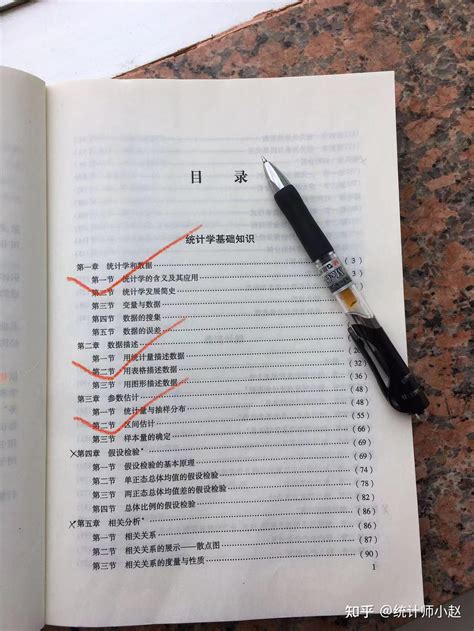 目 录
统计学基础知识
第一章 统计学和数据 ( 3 )
第一节 统计学的含义及其应用 ( 3 )
第二节 统计学发展简史
第三节 变量与数据
第四节 数据的搜集
第五节 数据的误差
第二章 数据描述
第一节 用统计量描述数据
第二节 用表格描述数据 ( 32
第三节 用图形描述数据 ( 36
第三章 参数估计 ( 48
第一节 统计量与抽样分布 ( 55)
第二节 区间估计 ( 66)
第三节 样本量的确定 ( 69)
×第四章 假设检验* 
第一节 假设检验的基本原理 ( 74 )
第二节 单正态总体均值的假设检验 ( 78 )
第三节 两正态总体均值差的假设检验 ( 82 )
第四节 总体比例的假设检验 ( 86 )
×第五章 相关分析* ( 86 )
第一节 相关关系 ( 87 )
第二节 相关关系的展示——散点图 ( 90 )
第三节 相关关系的度量与性质
1
知乎 @统计师小赵